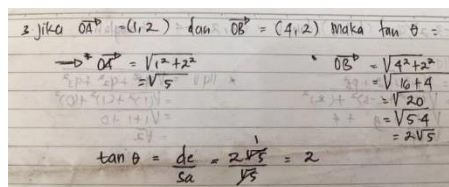 3 jika OA = (1, 2) dan OB = (4, 2) maka tan θ =
→ * OA = √1²+2²
= √5
• OB = √4²+2²
= √16+4
= √20
= √5·4
= 2√5
tan θ = de/sa = 2√5/√5 = 2